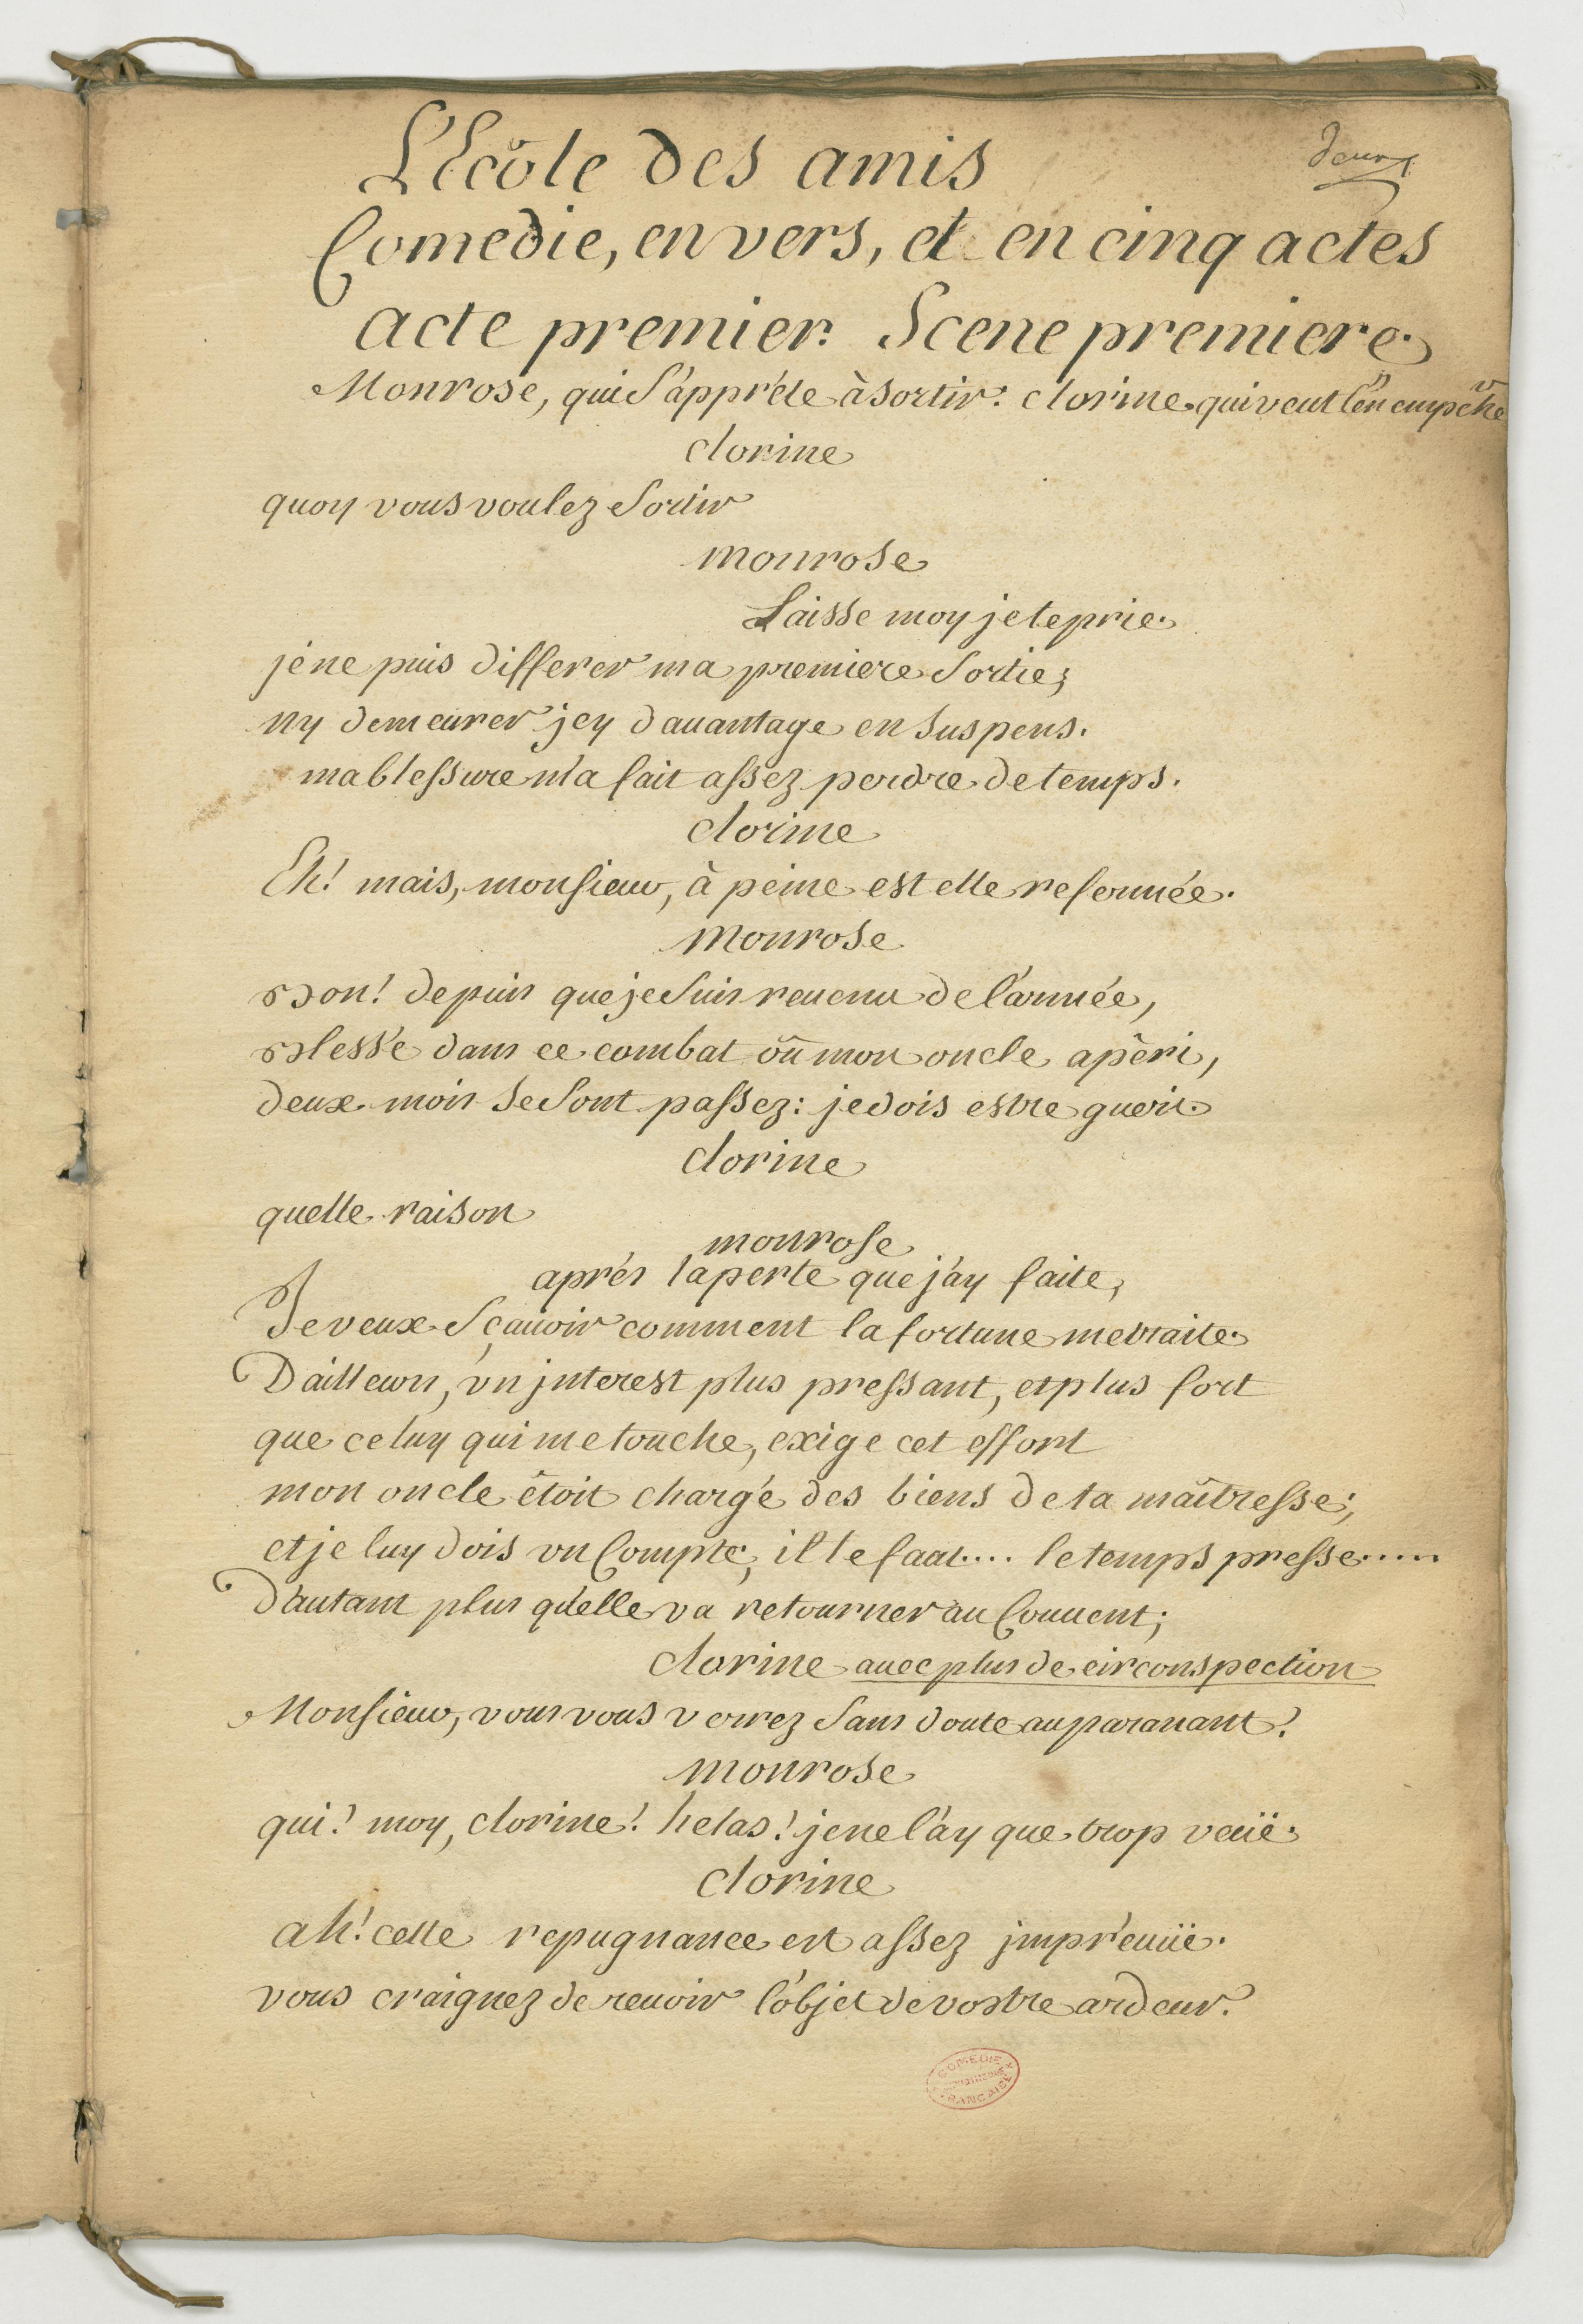 deux
L'Ecôle des amis
Comedie, en vers, et en cinq actes
acte premier. Scene premiere.
Monrose, qui s'apprête à sortir. Clorine qui veut l'en empêche
clorine
quoy vous voulez sortir
monrose
Laisse moy je te prie.
je ne puis differer ma premiere sortie,
ny demeurer jcy dauantage en suspens.
ma blessure m'a fait assez perdre de temps.
clorine
Eh! mais, monsieur, à peine est elle refermée.
monrose
Bon! depuis que je suis reuenu de l'armée,
Blessé dans ce combat où mon oncle a péri,
deux mois se sont passez: je dois estre gueri.
clorine
quelle raison
monrose
aprés la perte que j'ay faite,
Je veux sçauoir comment la fortune me traite.
D'ailleurs, vn jnterest plus pressant, et plus fort
que celuy qui me touche, exige cet effort
mon oncle étoit chargé des biens de ta maîtresse;
et je luy dois vn Compte, il le faut.... le temps presse.....
D'autant plus qu'elle va retourner au Couuent;
clorine auec plus de circonspection
Monsieur, vous vous verrez sans doute auparauant?
monrose
qui? moy, clorine! helas! je ne l'ay que trop veüe.
clorine
ah! cette repugnance est assez jmpréuüe.
vous craignez de reuoir l'objet de vostre ardeur?
COMEDIE FRANCAISE